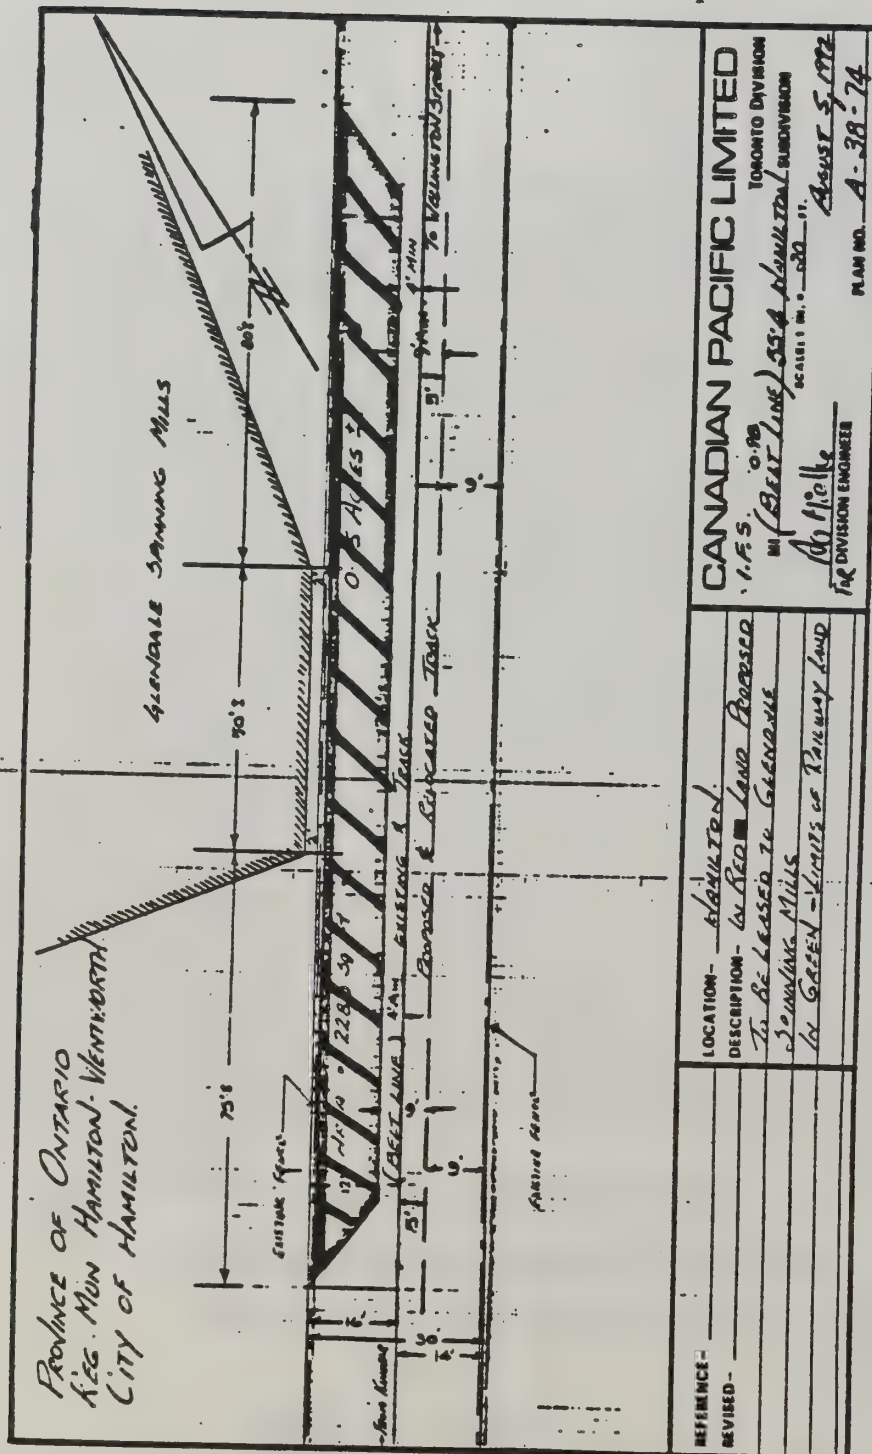 PROVINCE OF ONTARIO
REG. MUN HAMILTON-WENTWORTH
CITY OF HAMILTON.
GLENDALE SPINNING MILLS
75'±
50'±
80'±
EXISTING FENCE
AREA
(BELT LINE)
4' MIN
EXISTING ℄ TRACK
PROPOSED ℄ RELOCATED TRACK
4' MIN
TO WELLINGTON STREET
9'
9'
9'
16'
30'
REFERENCE-
REVISED-
LOCATION- HAMILTON.
DESCRIPTION- IN RED LAND PROPOSED
TO BE LEASED TO GLENDALE
SPINNING MILLS
IN GREEN - LIMITS OF RAILWAY LAND
CANADIAN PACIFIC LIMITED
I.F.S.
TORONTO DIVISION
MI 0.98 (BELT LINE) HAMILTON SUBDIVISION
SCALE: 1 IN. = 20 FT.
AUGUST 5, 1992
FOR DIVISION ENGINEER
PLAN NO. A-38-74